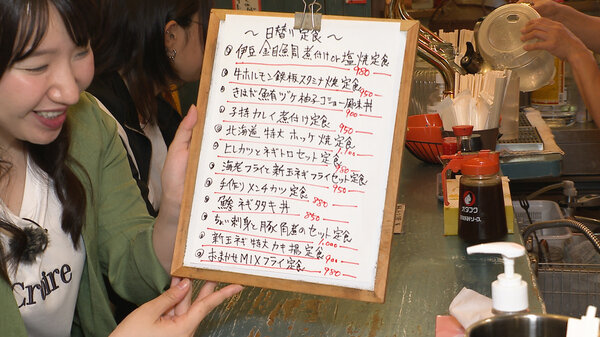 〜日替り定食〜
伊豆金目鯛煮付けor塩焼定食
950
牛ホルモン鉄板スタミナ焼定食
950
きはだ鮪ヅケ柚子コショー風味丼
900
子持カレイ煮付け定食
950
北海道特大ホッケ焼定食
1,100
ヒレカツとネギトロセット定食
950
海老フライと新玉ネギフライセット定食
950
手作りメンチカツ定食
850
鯵タタキ丼
850
ちょい刺身と豚角煮のセット定食
1,000
新玉ネギ特大カキ揚定食
900
おまかせMIXフライ定食
950
オタフク